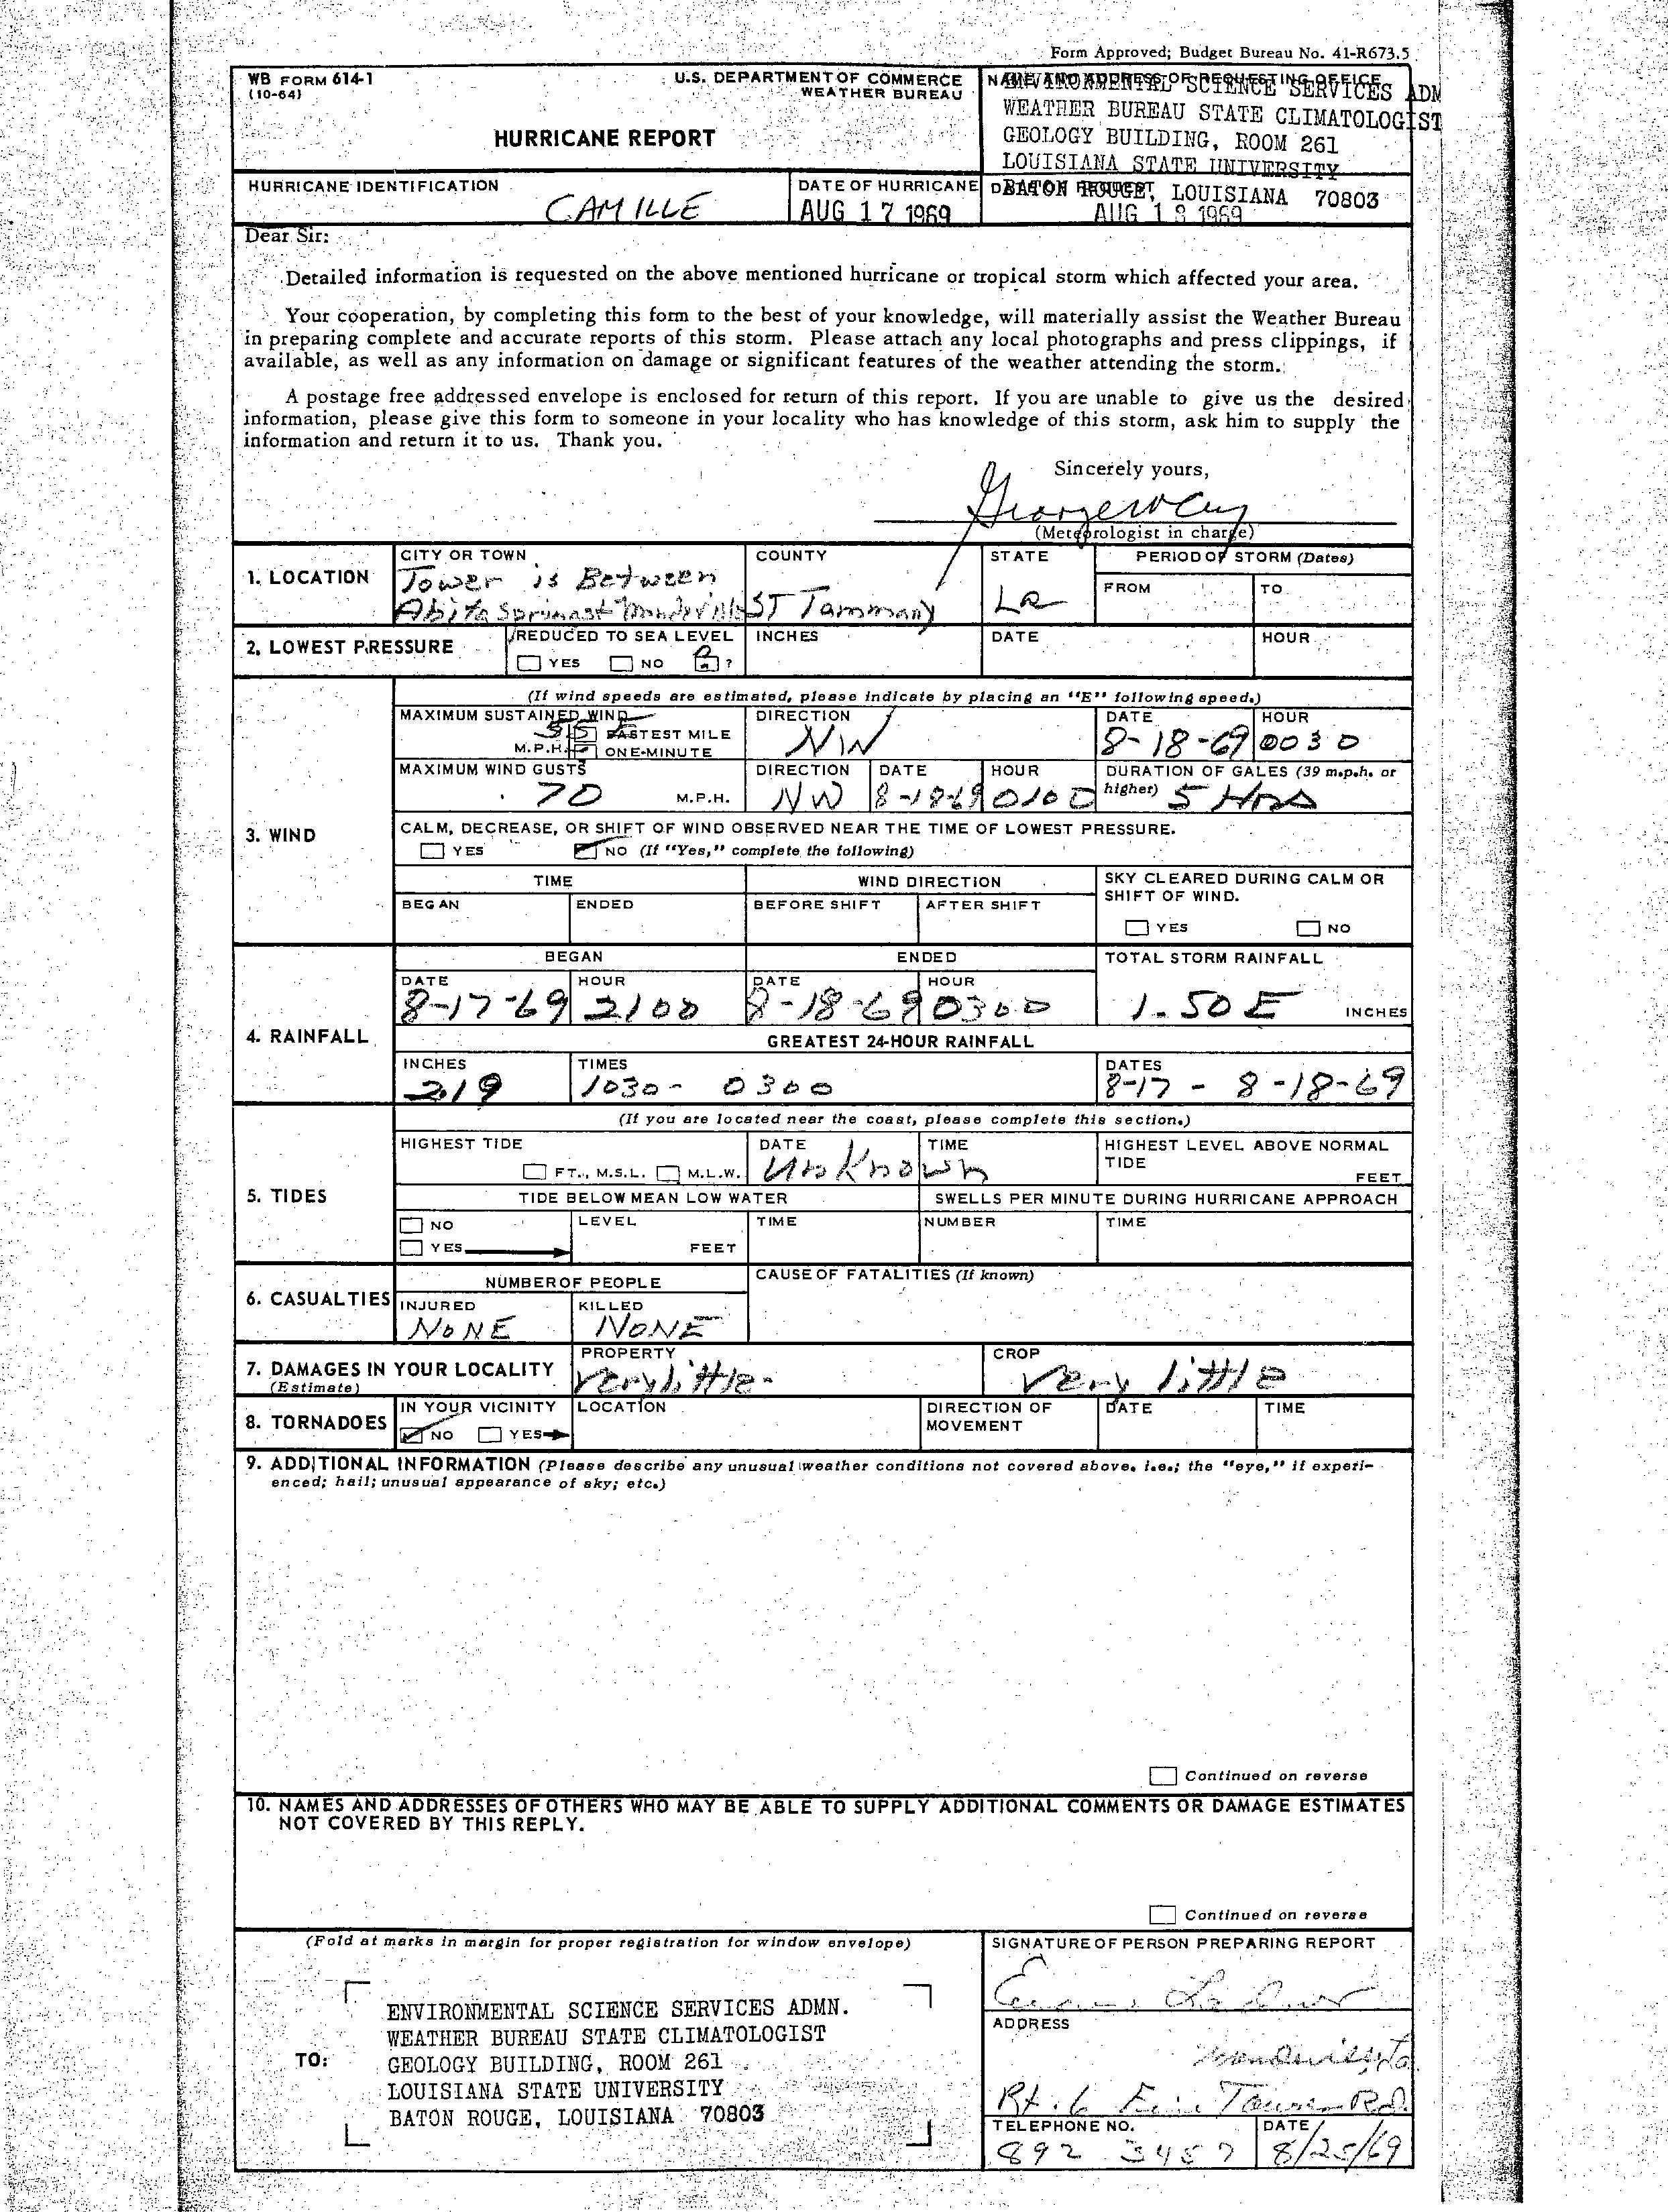 Form Approved; Budget Bureau No. 41-R673.5
WB FORM 614-1
(10-64)
U.S. DEPARTMENT OF COMMERCE
WEATHER BUREAU
HURRICANE REPORT
NAME AND ADDRESS OF REQUESTING OFFICE
ENVIRONMENTAL SCIENCE SERVICES ADM
WEATHER BUREAU STATE CLIMATOLOGIST
GEOLOGY BUILDING, ROOM 261
LOUISIANA STATE UNIVERSITY
BATON ROUGE, LOUISIANA 70803
HURRICANE IDENTIFICATION
CAMILLE
DATE OF HURRICANE
AUG 17 1969
DATE OF REQUEST
AUG 18 1969
Dear Sir:
Detailed information is requested on the above mentioned hurricane or tropical storm which affected your area.
Your cooperation, by completing this form to the best of your knowledge, will materially assist the Weather Bureau
in preparing complete and accurate reports of this storm. Please attach any local photographs and press clippings, if
available, as well as any information on damage or significant features of the weather attending the storm.
A postage free addressed envelope is enclosed for return of this report. If you are unable to give us the desired
information, please give this form to someone in your locality who has knowledge of this storm, ask him to supply the
information and return it to us. Thank you.
Sincerely yours,
George W Cry
(Meteorologist in charge)
1. LOCATION
CITY OR TOWN
Tower is Between
Abita Springs + Mandeville
COUNTY
ST Tammany
STATE
La
PERIOD OF STORM (Dates)
FROM
TO
2. LOWEST PRESSURE
REDUCED TO SEA LEVEL
YES NO ?
INCHES
DATE
HOUR
3. WIND
(If wind speeds are estimated, please indicate by placing an "E" following speed.)
MAXIMUM SUSTAINED WIND
FASTEST MILE
M.P.H. ONE-MINUTE
DIRECTION
NW
DATE
8-18-69
HOUR
0030
MAXIMUM WIND GUSTS
70 M.P.H.
DIRECTION
NW
DATE
8-18-69
HOUR
0100
DURATION OF GALES (39 m.p.h. or
higher) 5 Hrs
CALM, DECREASE, OR SHIFT OF WIND OBSERVED NEAR THE TIME OF LOWEST PRESSURE.
YES NO (If "Yes," complete the following)
TIME
WIND DIRECTION
SKY CLEARED DURING CALM OR
SHIFT OF WIND.
BEGAN
ENDED
BEFORE SHIFT
AFTER SHIFT
YES NO
4. RAINFALL
BEGAN
ENDED
TOTAL STORM RAINFALL
DATE
8-17-69
HOUR
2100
DATE
8-18-69
HOUR
0300
1.50 E INCHES
GREATEST 24-HOUR RAINFALL
INCHES
2.19
TIMES
1030 - 0300
DATES
8-17 - 8-18-69
5. TIDES
(If you are located near the coast, please complete this section.)
HIGHEST TIDE
FT., M.S.L. M.L.W.
DATE
TIME
Unknown
HIGHEST LEVEL ABOVE NORMAL
TIDE
FEET
TIDE BELOW MEAN LOW WATER
SWELLS PER MINUTE DURING HURRICANE APPROACH
NO
YES
LEVEL
FEET
TIME
NUMBER
TIME
6. CASUALTIES
NUMBER OF PEOPLE
INJURED
NONE
KILLED
NONE
CAUSE OF FATALITIES (If known)
7. DAMAGES IN YOUR LOCALITY
(Estimate)
PROPERTY
Very little
CROP
Very little
8. TORNADOES
IN YOUR VICINITY
NO YES
LOCATION
DIRECTION OF
MOVEMENT
DATE
TIME
9. ADDITIONAL INFORMATION (Please describe any unusual weather conditions not covered above, i.e.; the "eye," if experi-
enced; hail; unusual appearance of sky; etc.)
Continued on reverse
10. NAMES AND ADDRESSES OF OTHERS WHO MAY BE ABLE TO SUPPLY ADDITIONAL COMMENTS OR DAMAGE ESTIMATES
NOT COVERED BY THIS REPLY.
Continued on reverse
(Fold at marks in margin for proper registration for window envelope)
TO:
ENVIRONMENTAL SCIENCE SERVICES ADMN.
WEATHER BUREAU STATE CLIMATOLOGIST
GEOLOGY BUILDING, ROOM 261
LOUISIANA STATE UNIVERSITY
BATON ROUGE, LOUISIANA 70803
SIGNATURE OF PERSON PREPARING REPORT
ADDRESS
Mandeville, La
Rt. 6 Fire Tower Rd.
TELEPHONE NO.
892 3457
DATE
8/25/69